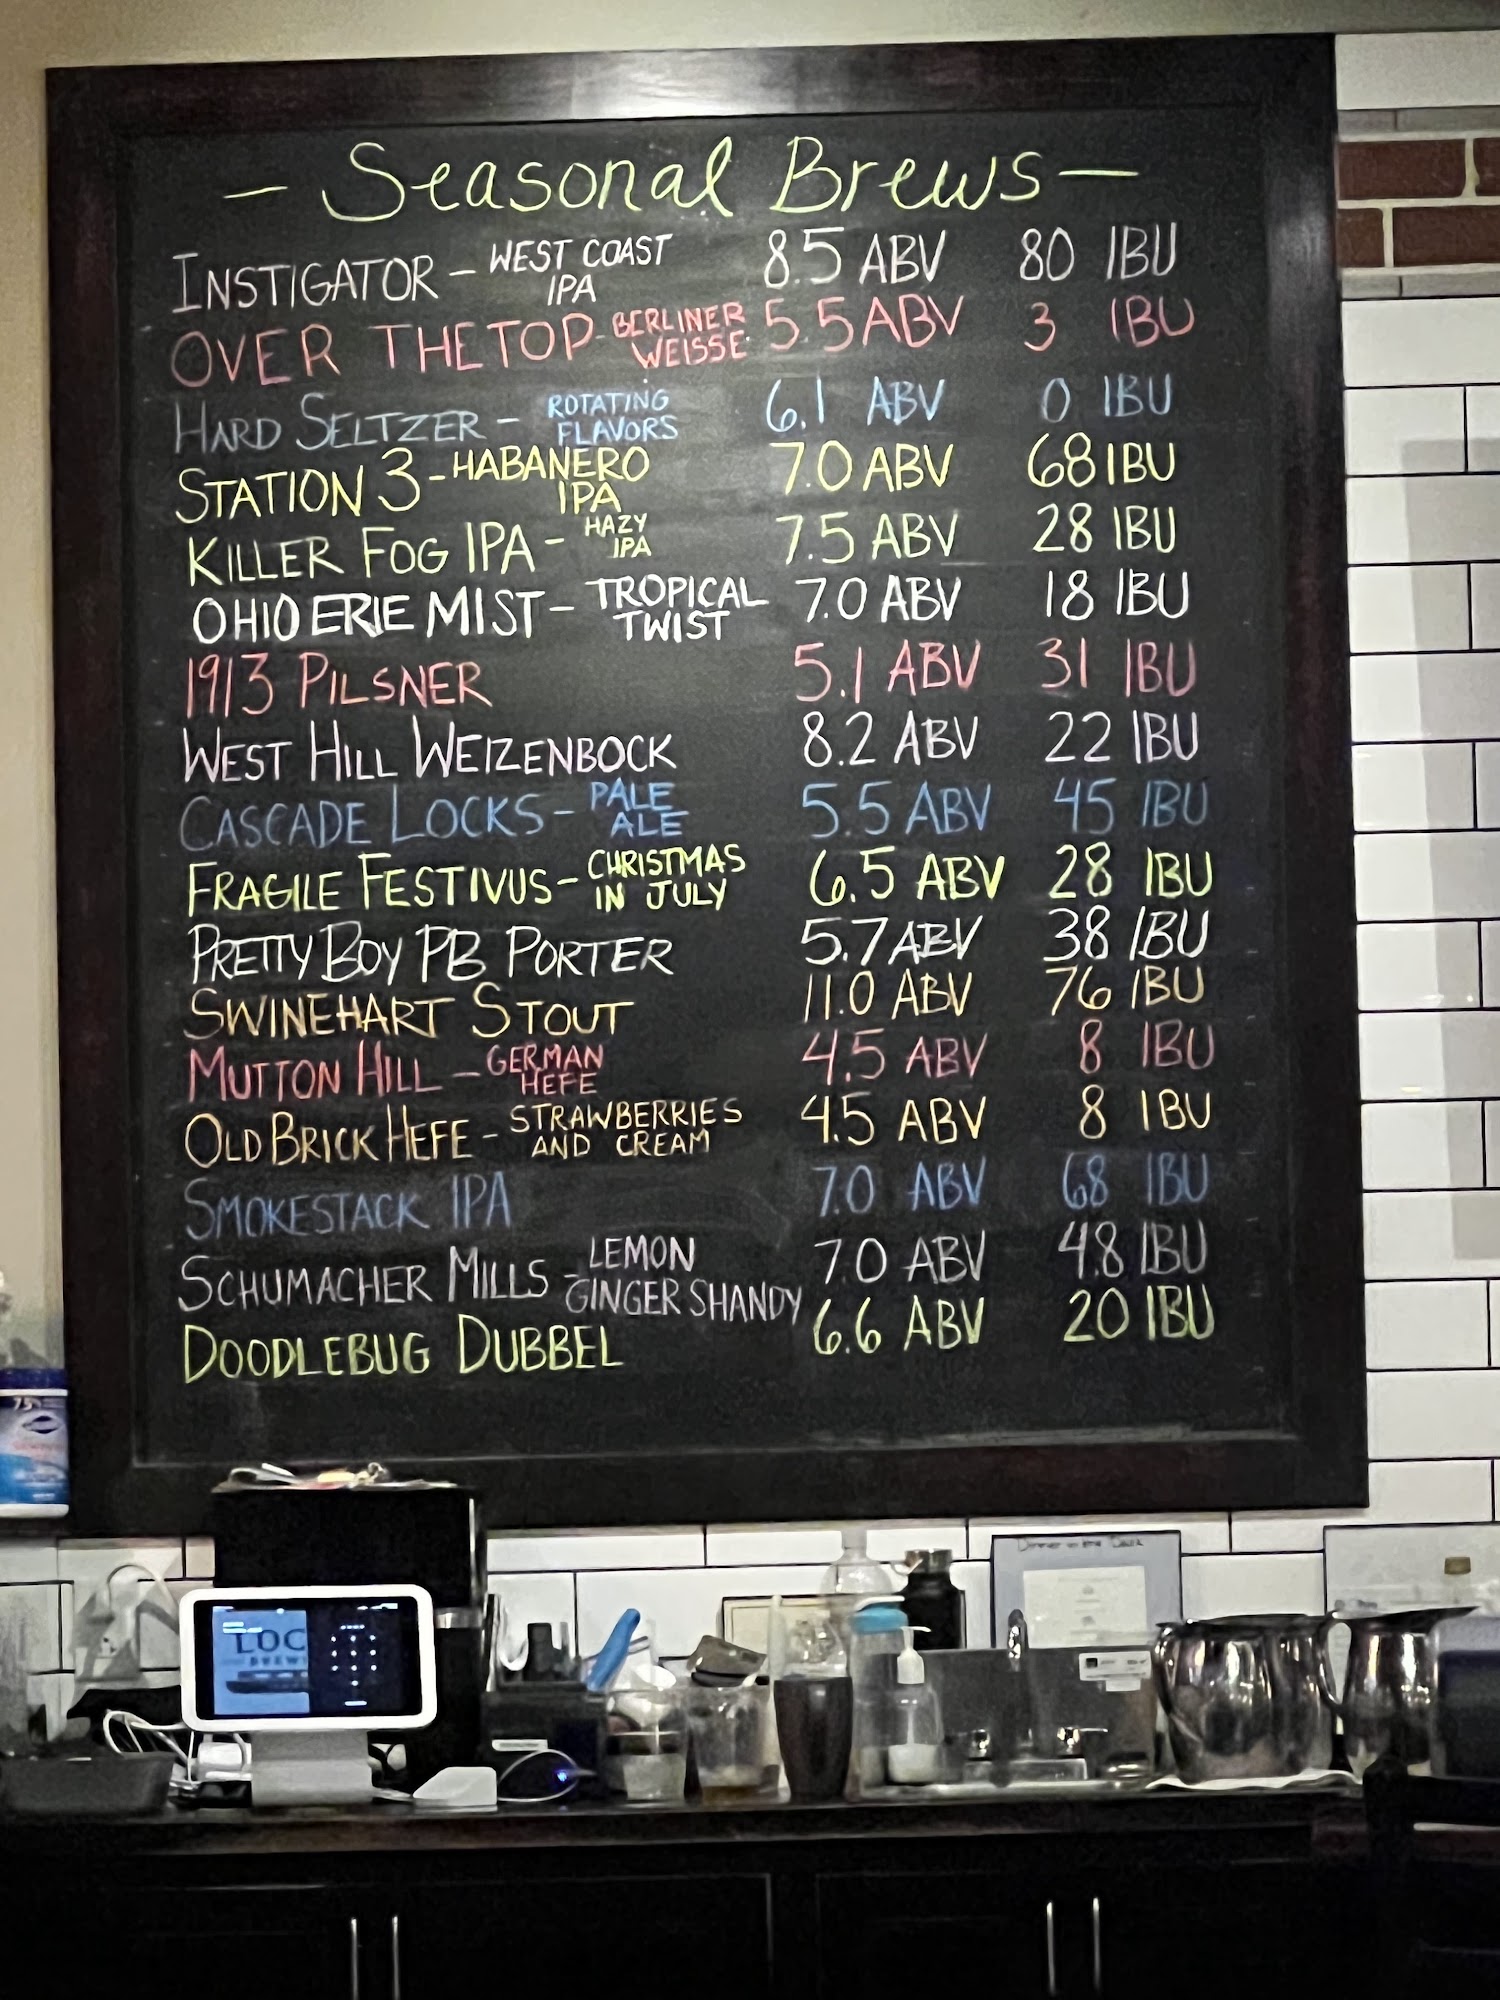 - Seasonal Brews -
INSTIGATOR - WEST COAST IPA 8.5 ABV 80 IBU
OVER THE TOP - BERLINER WEISSE 5.5 ABV 3 IBU
HARD SELTZER - ROTATING FLAVORS 6.1 ABV 0 IBU
STATION 3 - HABANERO IPA 7.0 ABV 68 IBU
KILLER FOG IPA - HAZY IPA 7.5 ABV 28 IBU
OHIO ERIE MIST - TROPICAL TWIST 7.0 ABV 18 IBU
1913 PILSNER 5.1 ABV 31 IBU
WEST HILL WEIZENBOCK 8.2 ABV 22 IBU
CASCADE LOCKS - PALE ALE 5.5 ABV 45 IBU
FRAGILE FESTIVUS - CHRISTMAS IN JULY 6.5 ABV 28 IBU
PRETTY BOY PB PORTER 5.7 ABV 38 IBU
SWINEHART STOUT 11.0 ABV 76 IBU
MUTTON HILL - GERMAN HEFE 4.5 ABV 8 IBU
OLD BRICK HEFE - STRAWBERRIES AND CREAM 4.5 ABV 8 IBU
SMOKESTACK IPA 7.0 ABV 68 IBU
SCHUMACHER MILLS - LEMON GINGER SHANDY 7.0 ABV 4.8 IBU
DOODLEBUG DUBBEL 6.6 ABV 20 IBU
75
LOC
BREW